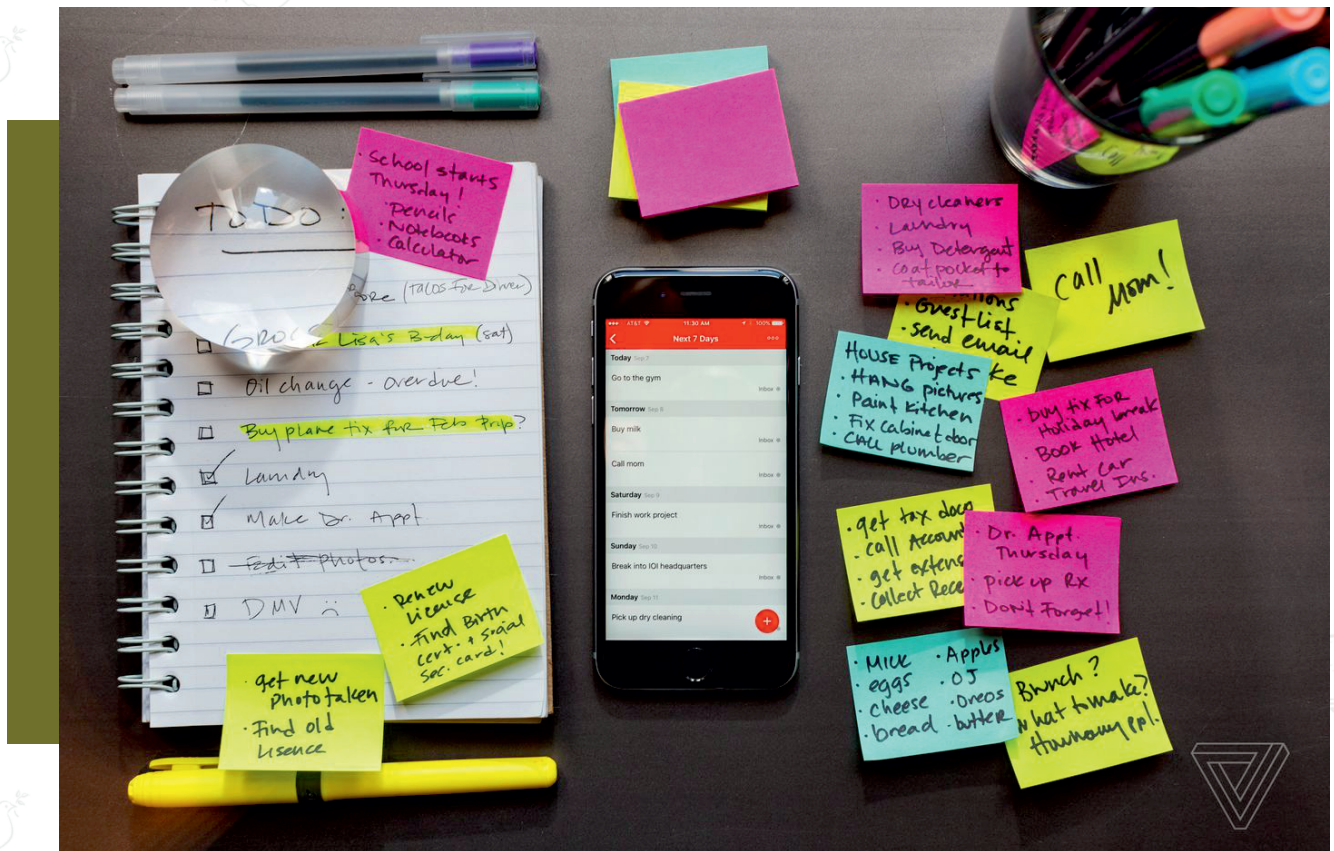 To Do :
· School starts
Thursday!
· Pencils
· Notebooks
· Calculator
(Tacos For Dinner)
GROC
Lisa's B-day (sat)
Oil change - overdue!
Buy plane tix for Feb Trip?
Laundry
Make Dr. Appt
Edit photos
DMV ☹
· Renew
License
· Find Birth
cert. + social
Sec. card!
· get new
photo taken
· Find old
Lisence
AT&T
11:30 AM
100%
Next 7 Days
Today Sep 7
Go to the gym
Inbox
Tomorrow Sep 8
Buy milk
Inbox
Call mom
Inbox
Saturday Sep 9
Finish work project
Inbox
Sunday Sep 10
Break into IOI headquarters
Inbox
Monday Sep 11
Pick up dry cleaning
+
· Dry cleaners
· Laundry
· Buy Detergent
· coat pocket to
tailor
Call
Mom!
· Guest list
· send email
HOUSE Projects
· HANG pictures
· Paint Kitchen
· Fix cabinet door
· CALL plumber
· buy tix FOR
Holiday break
· Book Hotel
· Rent Car
· Travel Ins.
· get tax docs
· call Account
· get extens
· Collect Rece
· Dr. Appt.
Thursday
· pick up Rx
· DON'T Forget!
· Milk · Apples
· eggs · OJ
· cheese · Oreos
· bread · butter
Brunch?
What to make?
How many ppl.